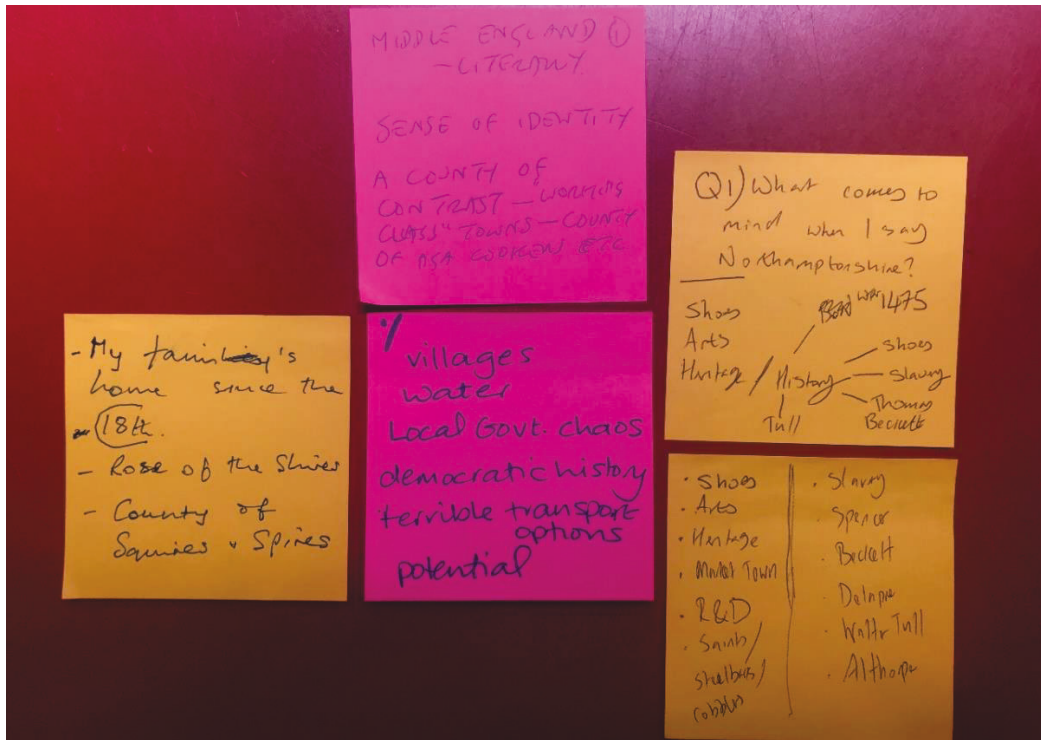 MIDDLE ENGLAND ①
- LITERARY
SENSE OF IDENTITY
A COUNTY OF
CONTRAST - WORKING
CLASS" TOWNS - COUNTY
OF ASA ETC
- My family's
home since the
18th.
- Rose of the Shires
- County of
Squires & Spires
villages
water
Local Govt. chaos
democratic history
terrible transport
options
potential
Q1) What comes to
mind when I say
Northamptonshire?
Shoes
Arts
Heritage / History
1475
shoes
Slavery
Thomas
Beckett
Tull
· Shoes
· Arts
· Heritage
· Market Town
· R&D
· Saints /
Steelbacks /
cobblers
· Slavery
· Spencer
· Beckett
· Delapre
· Walter Tull
· Althorpe